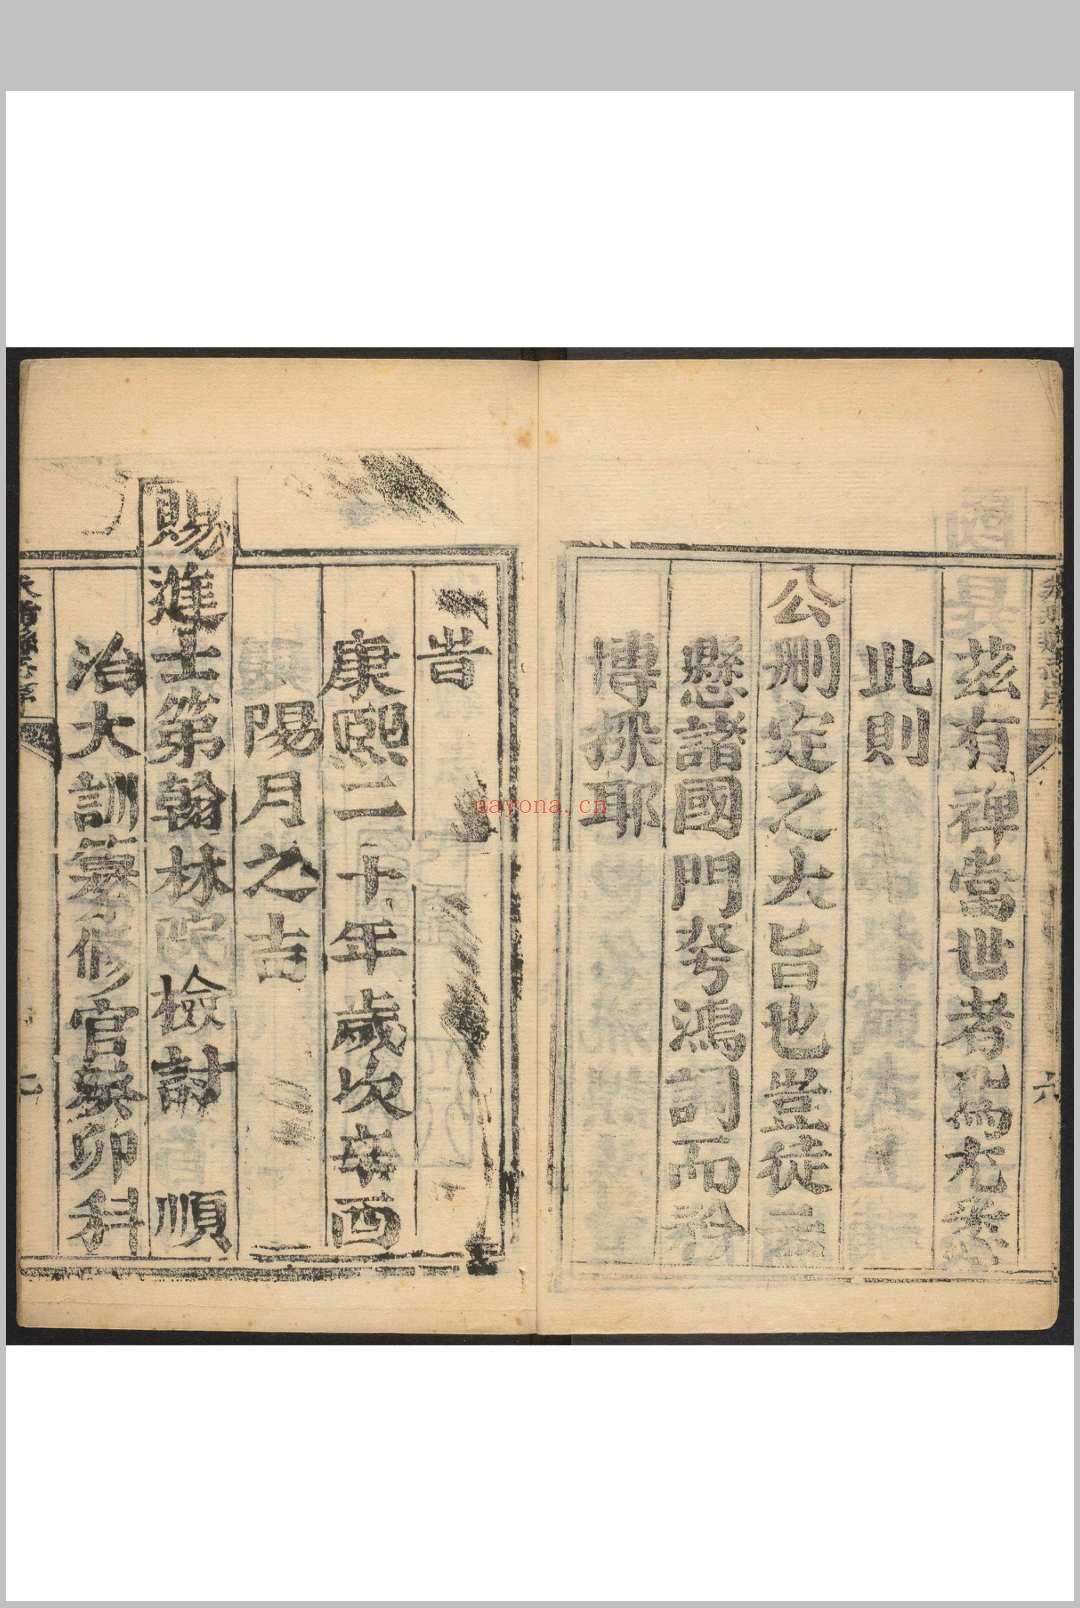 茲有裨當世者為尤
此則
公刪定之大旨也豈徒
懸諸國門夸鴻詞而矜
博採耶
六
昔
康熙二十年歲次辛酉
陽月之吉
賜進士第翰林院檢討順
治大訓纂修官癸卯科
nayona.cn